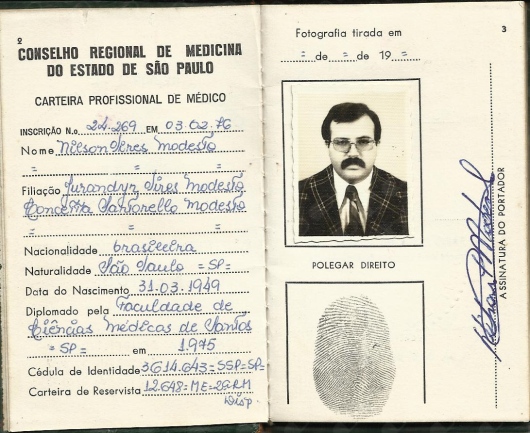 2
CONSELHO REGIONAL DE MEDICINA
DO ESTADO DE SÃO PAULO
CARTEIRA PROFISSIONAL DE MÉDICO
INSCRIÇÃO N.o 24.269 EM 03.02.76
Nome Nilson Pires Modesto
= = =
Filiação Jurandyr Pires Modesto
Concetta Santorello Modesto
= = =
Nacionalidade brasileira
Naturalidade São Paulo =SP=
Data do Nascimento 31.03.1949
Diplomado pela Faculdade de
Ciências Médicas de Santos
=SP= em 1975
Cédula de Identidade 3614.643=SSP=SP=
Carteira de Reservista 12.648=ME=2ªRM
Disp.
3
Fotografia tirada em
= de = de 19 =
POLEGAR DIREITO
ASSINATURA DO PORTADOR